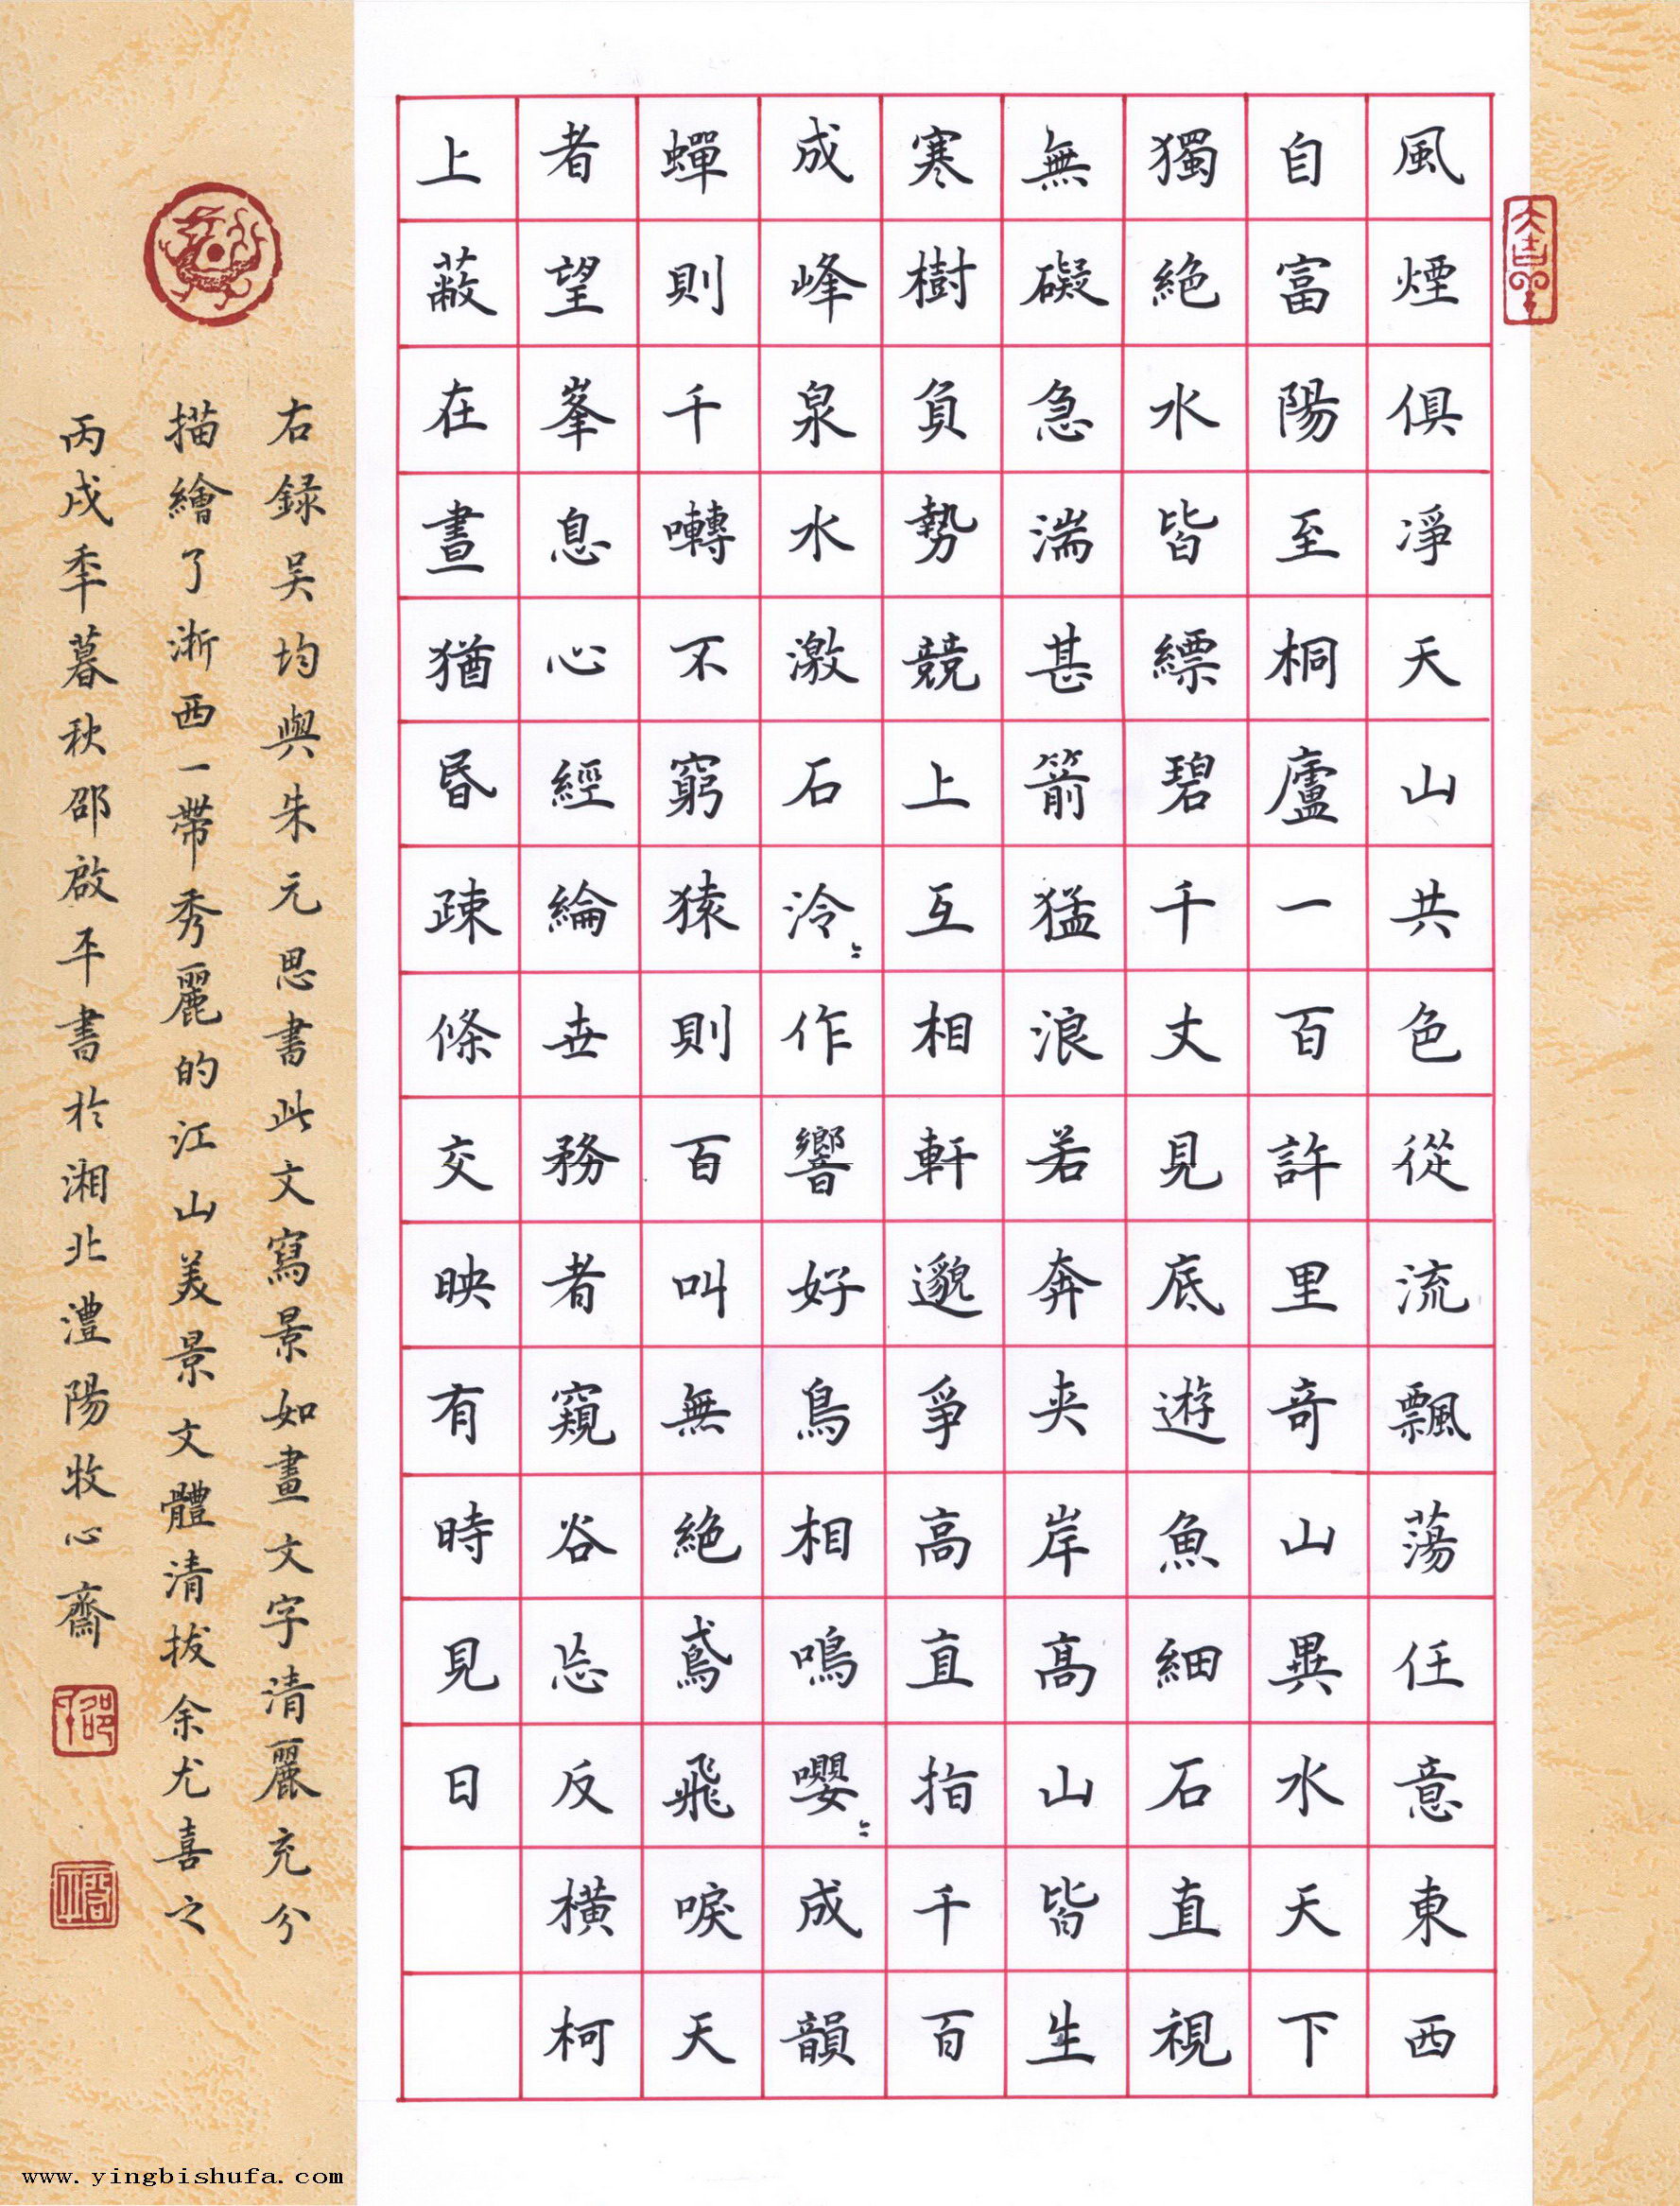 風煙俱凈天山共色從流飄蕩任意東西
自富陽至桐廬一百許里奇山異水天下
獨絶水皆縹碧千丈見底遊魚細石直視
無礙急湍甚箭猛浪若奔夹岸高山皆生
寒樹負勢競上互相軒邈爭高直指千百
成峰泉水激石泠〻作響好鳥相鳴嚶〻成韻
蟬則千囀不窮猿則百叫無絶鳶飛唳天
者望峯息心經綸世務者窺谷忘反橫柯
上蔽在晝猶昏疎條交映有時見日
右録吴均與朱元思書此文寫景如畫文字清麗充分
描繪了浙西一帶秀麗的江山美景文體清拔余尤喜之
丙戌年暮秋邵啟平書於湘北澧陽牧心齋
www.yingbishufa.com